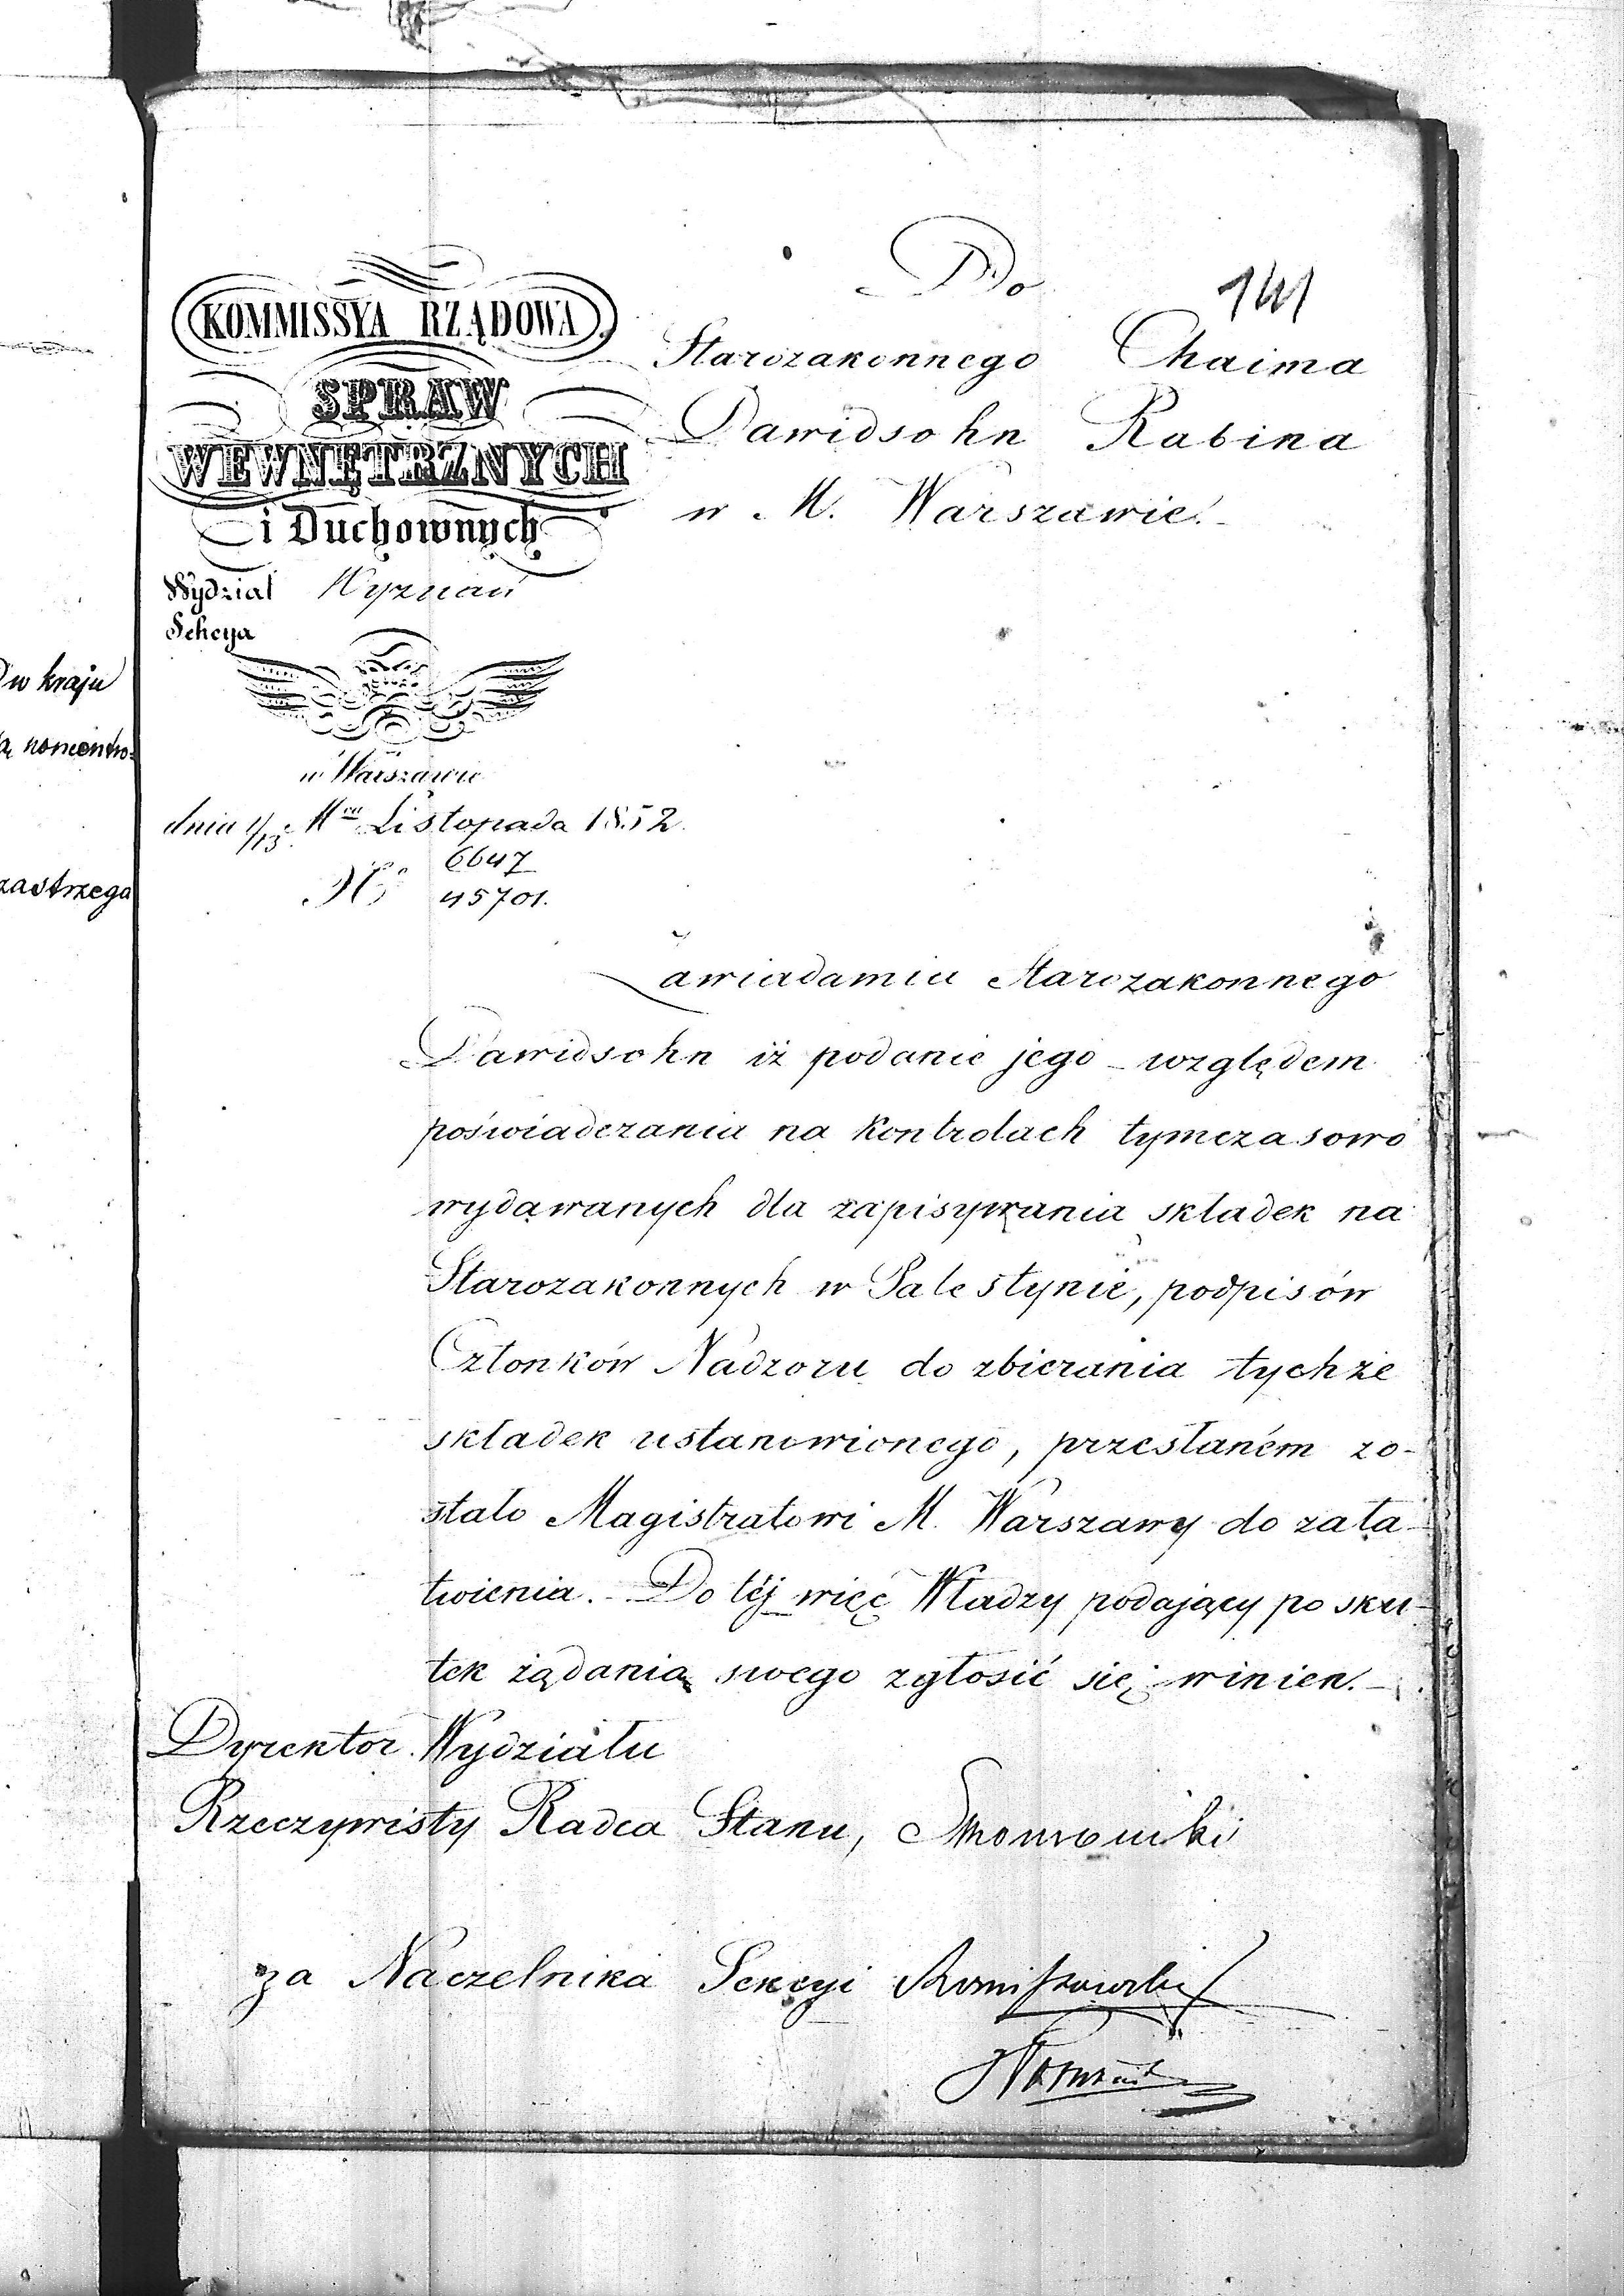 141
KOMMISSYA RZĄDOWA
SPRAW
WEWNĘTRZNYCH
i Duchownych
Wydział Wyznań
Sekcya
w Warszawie
dnia 1/13 Mca Listopada 1852.
No 6647
45701.
Do
Starozakonnego Chaima
Dawidsohn Rabina
w M. Warszawie.
Zawiadamia Starozakonnego
Dawidsohn iż podanie jego względem
poświadczania na kontrolach tymczasowo
wydawanych dla zapisywania składek na
Starozakonnych w Palestynie, podpisów
Członków Nadzoru do zbierania tychże
składek ustanowionego, przesłaném zo-
stało Magistratowi M. Warszawy do zała-
twienia. Do téj więc Władzy podający po sku-
tek żądania swego zgłosić się winien.
Dyrektor Wydziału
Rzeczywisty Radca Stanu,
za Naczelnika Sekcyi
w kraju
zastrzega